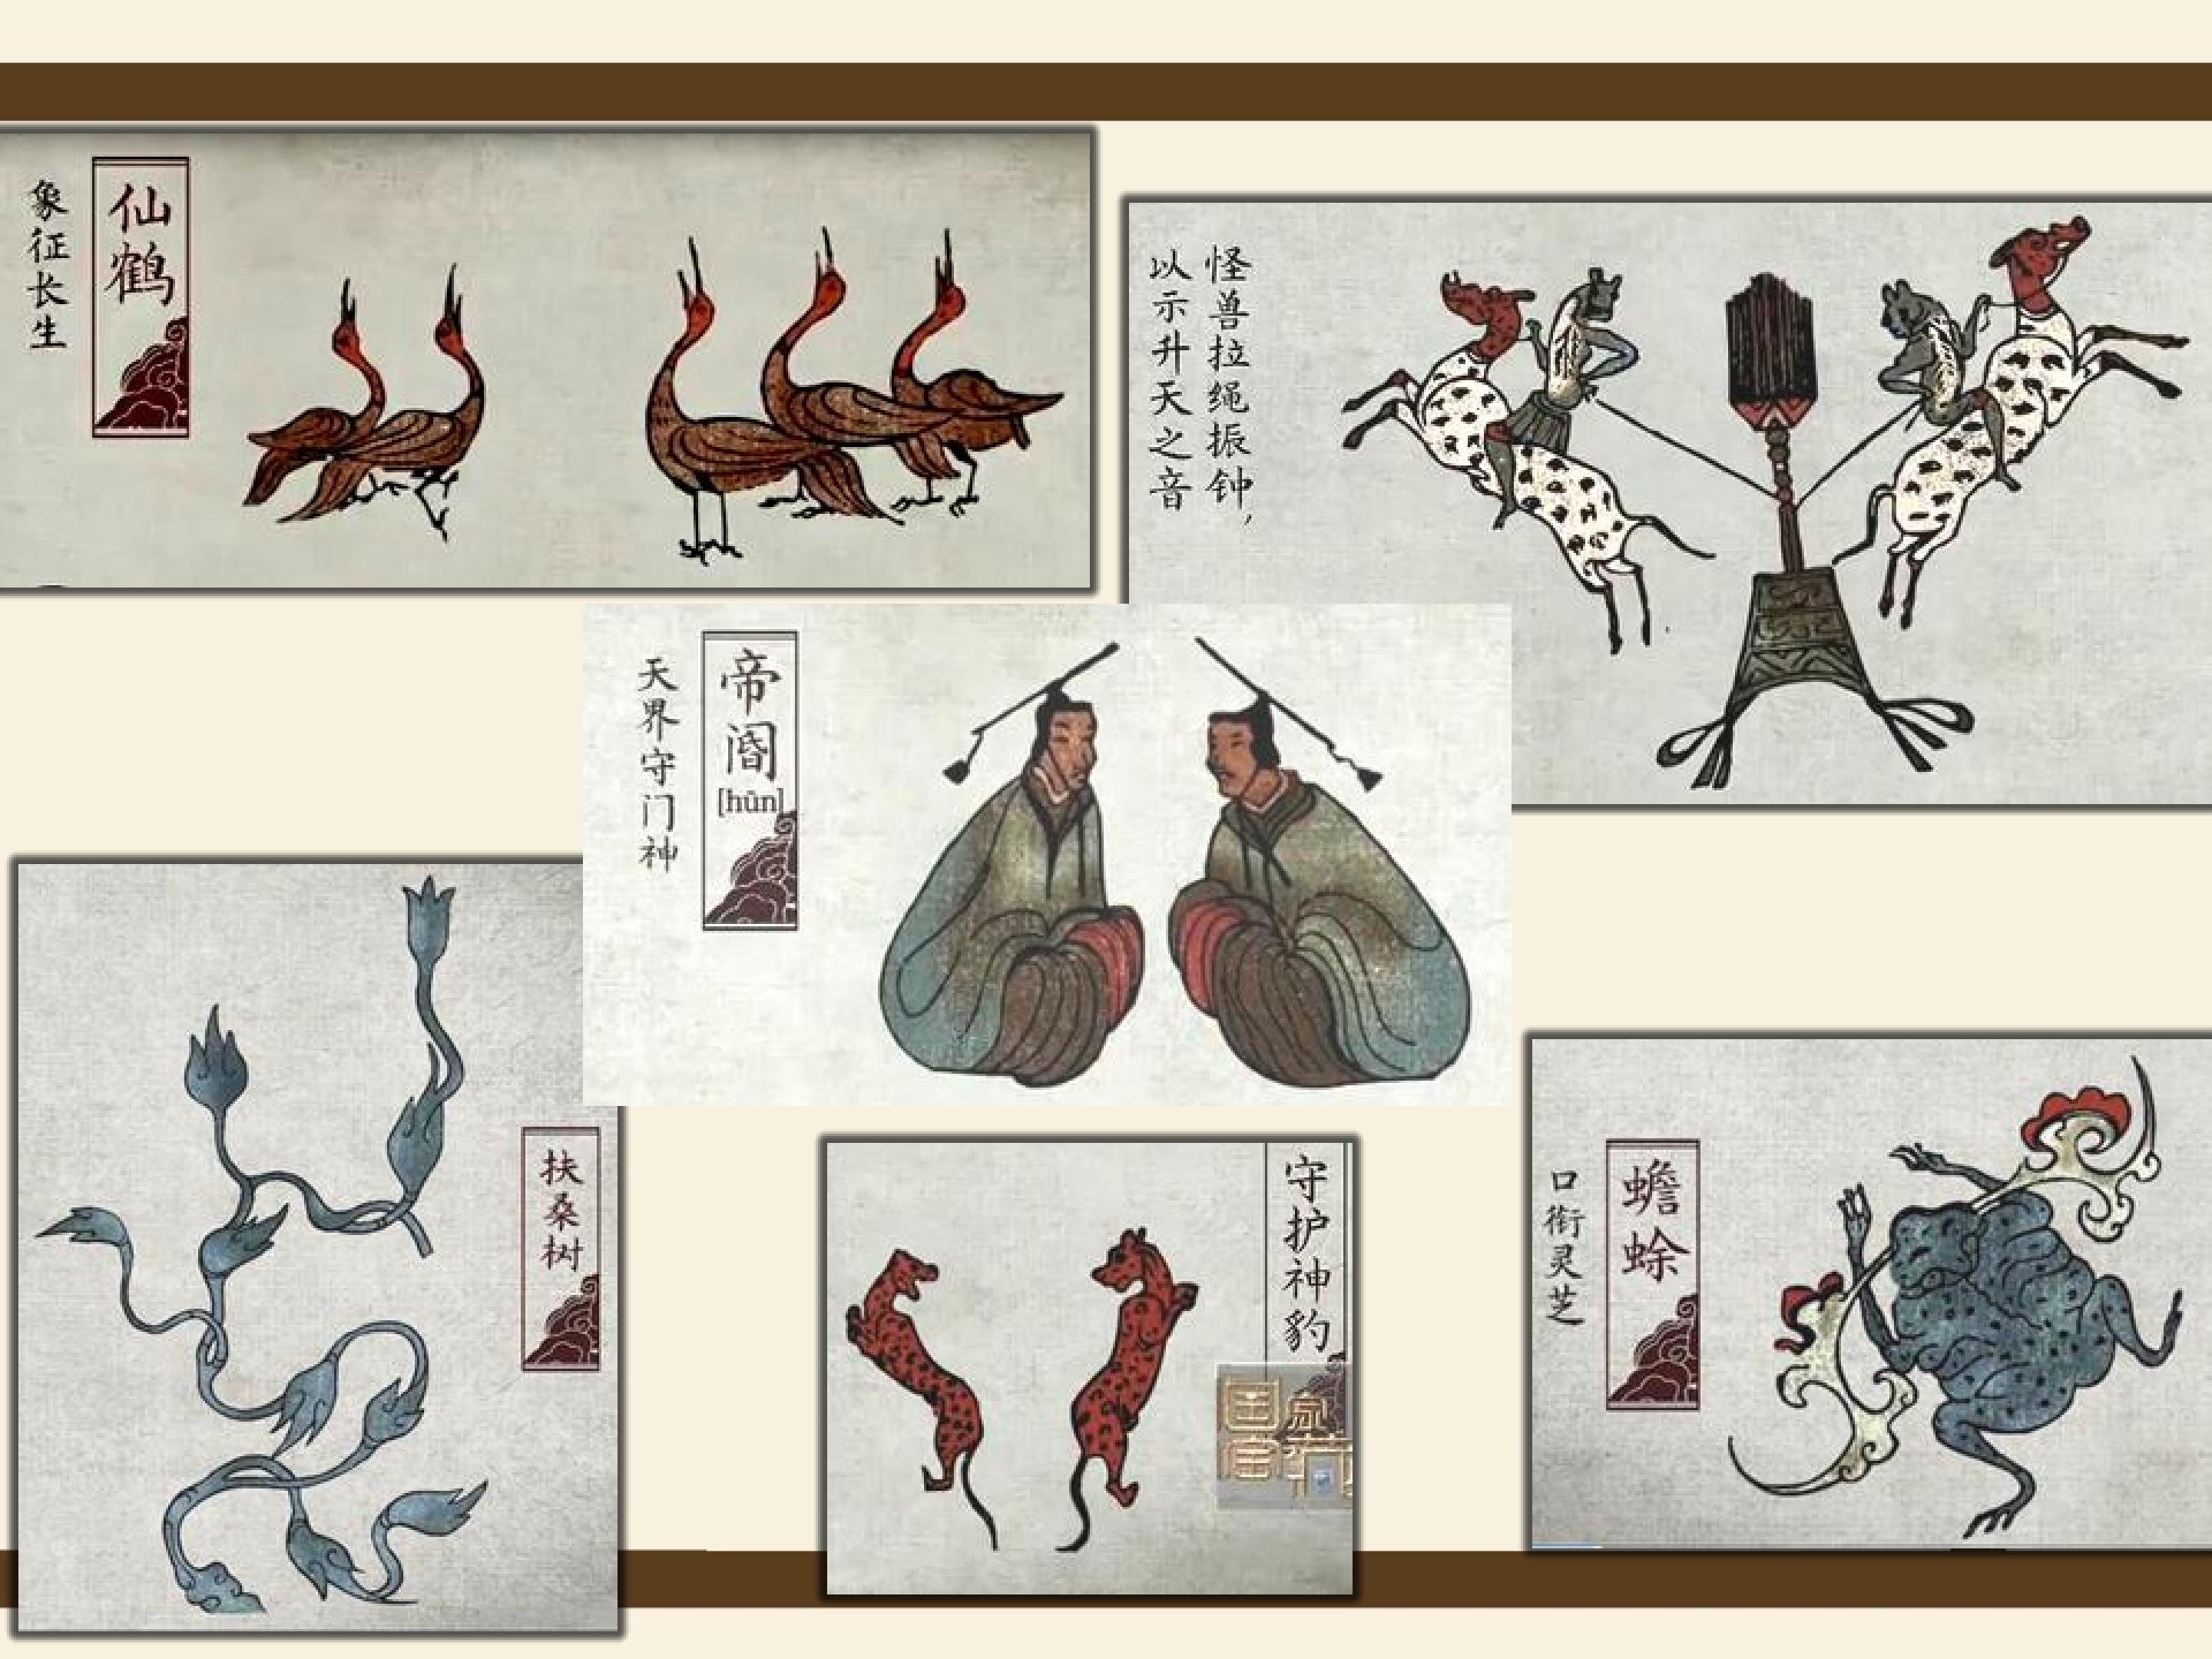 仙鹤
象征长生
怪兽拉绳振钟，
以示升天之音
帝阍
[hūn]
天界守门神
扶桑树
守护神豹
国家
宝藏
蟾蜍
口衔灵芝